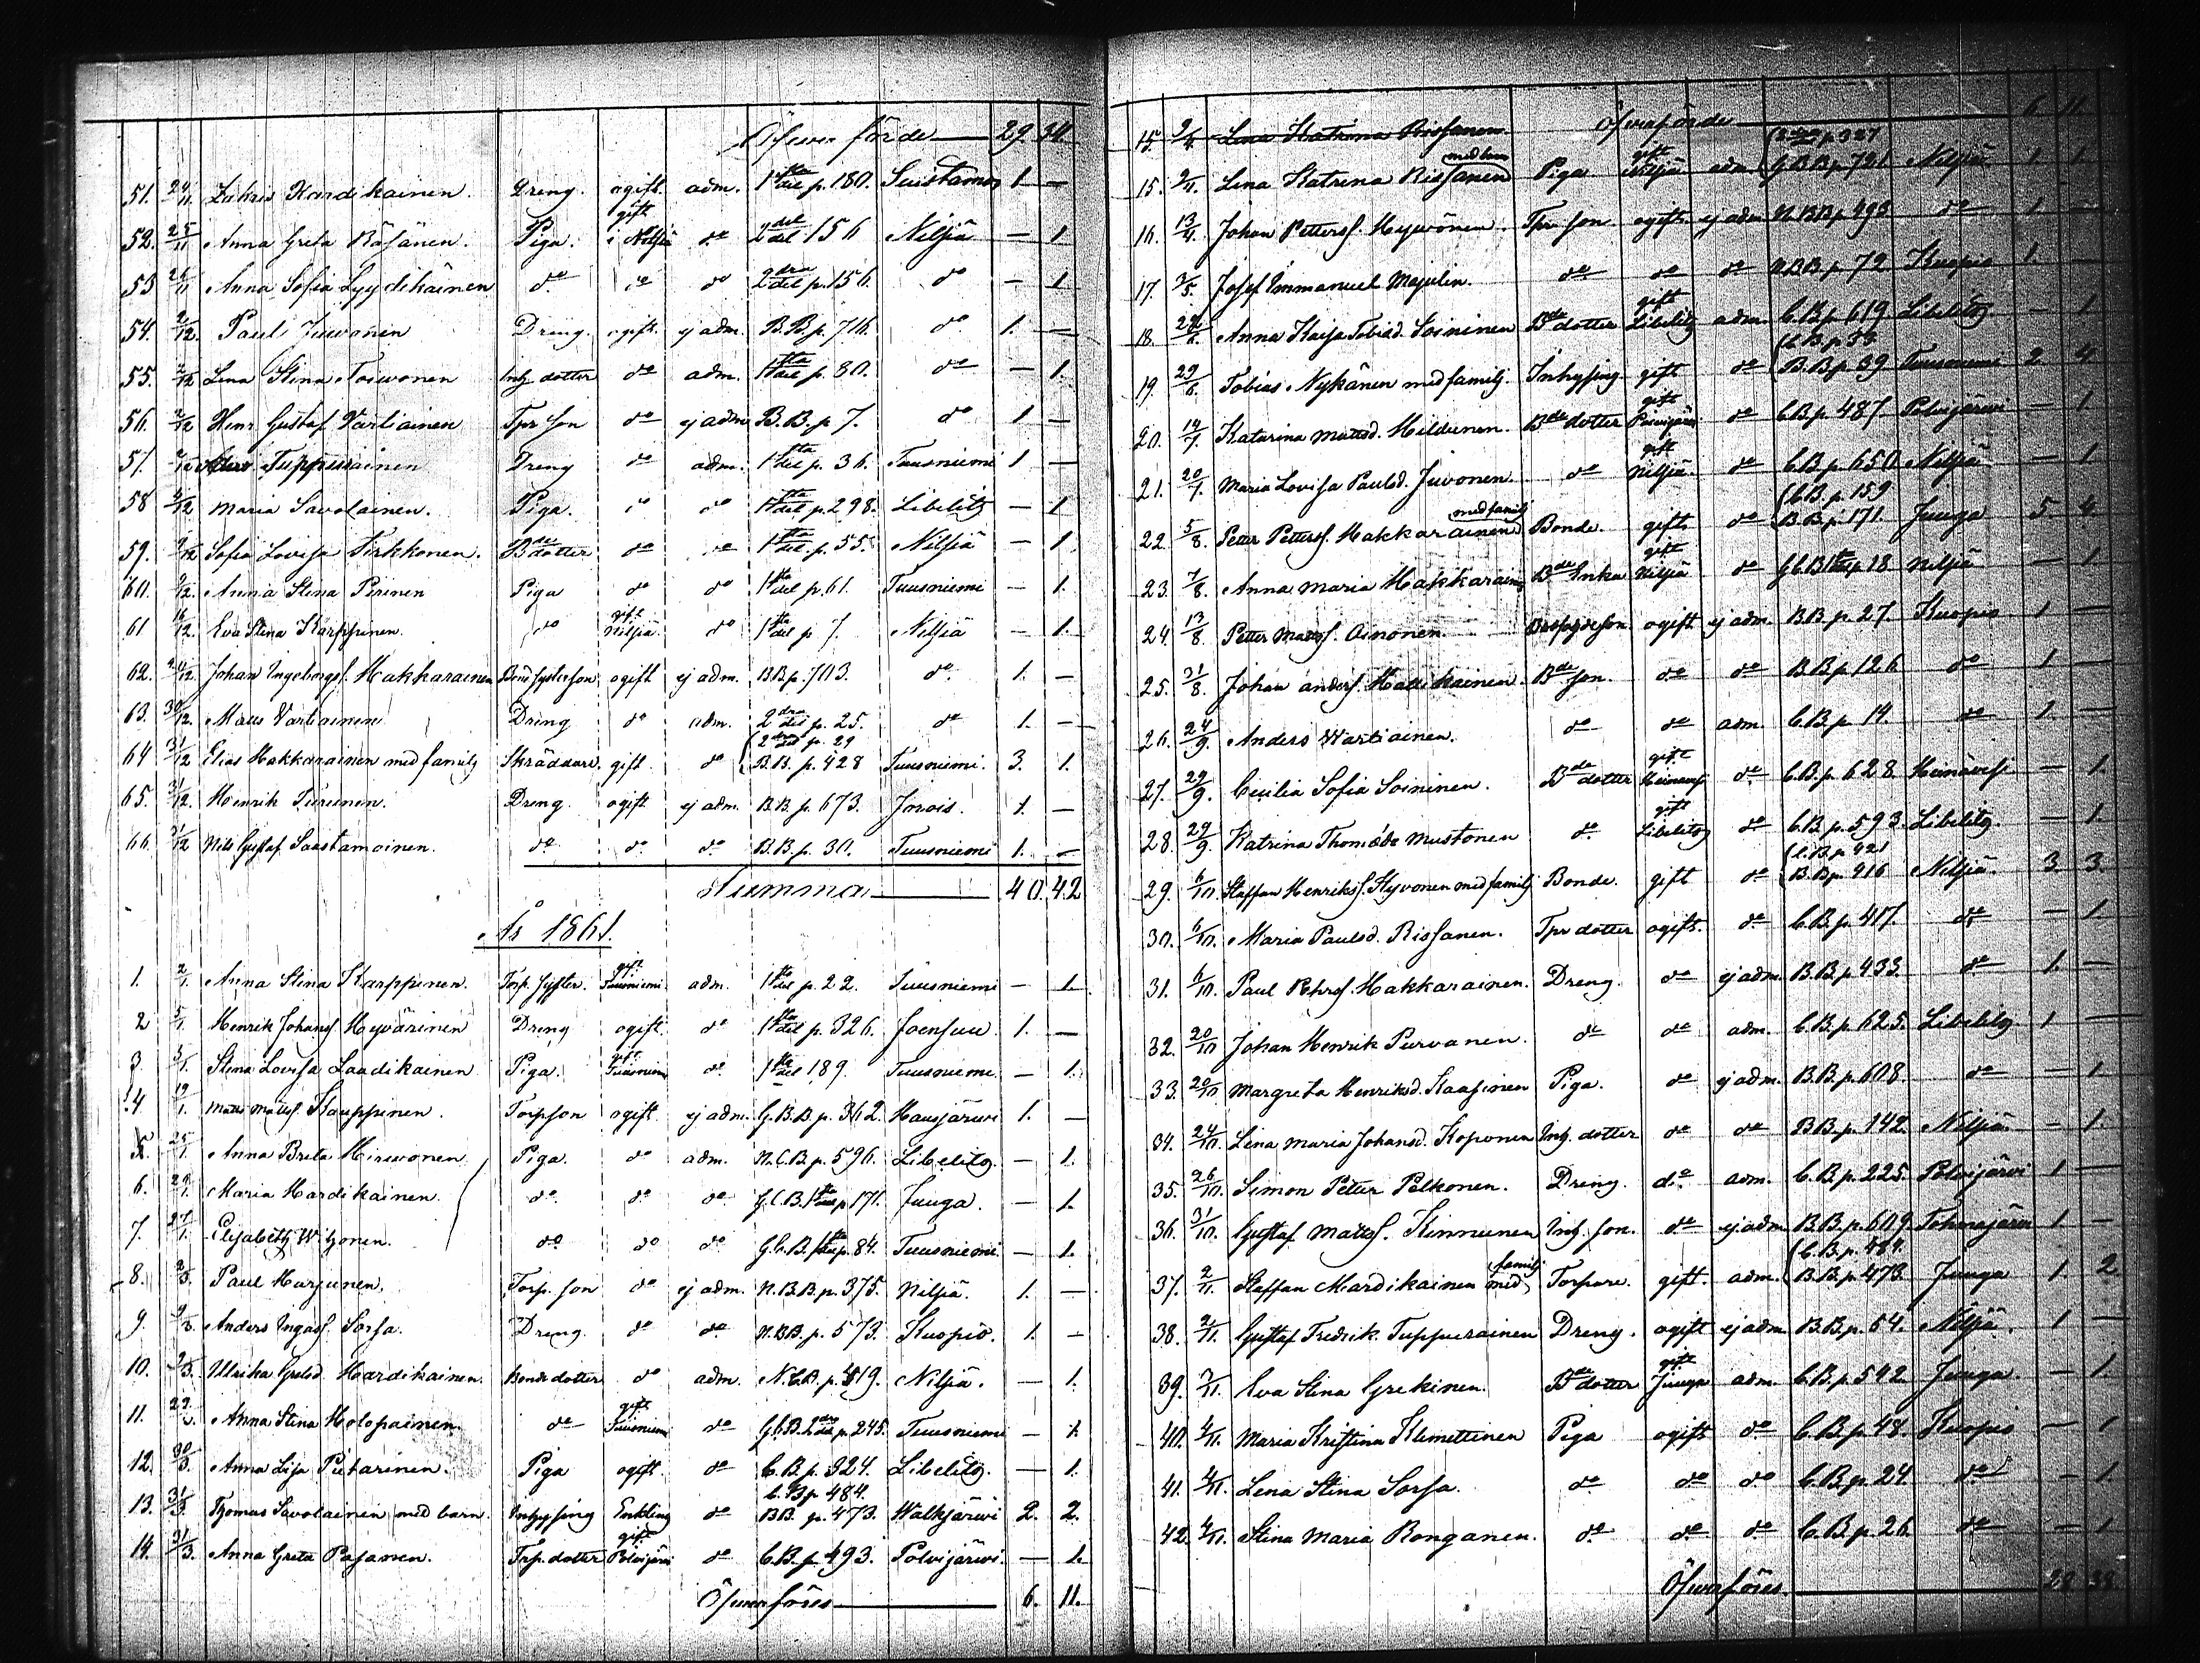 Öfverförde — 29. 31.
51. 24/11 Zakris Kardikainen. Dreng. ogift. adm. 1sta del p. 180. Suistamo 1 —
52. 25/11 Anna Greta Räsänen. Piga. gift i Nilsiä do 2dra del 156 Nilsiä — 1.
53 26/11 Anna Sofia Lyydikäinen do do do 2dra del p. 156. do — 1.
54. 2/12. Paul Juvonen Dreng. ogift. ej adm. B.B. p. 716. do 1. —
55. 2/12 Lena Stina Toivonen Inh. dotter do adm. 1sta del p. 80. do — 1.
56. 2/12 Henr Gustaf Vartiainen Tpr son do ej adm B.B. p. 7. do 1 —
57. 2/12 Tuppurainen Dreng do adm. 1sta del p. 36. Tuusniemi 1 —
58 4/12 Maria Savolainen. Piga. do do 1sta del p. 298. Libelits — 1
59. 9/12 Sofia Lovisa Tirkkonen. Bde dotter do do 1sta del. p. 55. Nilsiä — 1
60. 9/12. Anna Stina Pirinen Piga do do 1sta del p. 61. Tuusniemi — 1.
61 16/12. Eva Stina Karppinen. do gift Nilsiä. do 1sta del p. 7. Nilsiä — 1.
62. 24/12. Johan Ingeborgs. Hakkarainen Bondsysterson ogift ej adm. B.B p. 703. do. 1. —
63. 30/12 Matts Vartiainen Dreng do adm. 2dra del p. 25. do 1. —
64 31/12 Elias Hakkarainen med familj Skräddare. gift. do (2dra del p. 29 B.B. p. 428 Tuusniemi. 3. 1.
65. 31/12. Henrik Turunen. Dreng. ogift ej adm. B.B. p. 673. Jorois. 1. —
66. 31/12 Nils Gustaf Saastamoinen. do. do. do. B.B. p. 30. Tuusniemi 1. —
Summa — 40. 42
År 1861.
1. 2/1. Anna Stina Karppinen. Torp. syster. gift Tuusniemi. adm. 1sta del p. 22. Tuusniemi — 1.
2 5/1. Henrik Johans. Hyvärinen Dreng ogift. do 1sta del p. 326. Joensuu. 1. —
3. 5/1. Stina Lovisa Laadikainen Piga. gift Tuusniemi do. 1sta del 189. Tuusniemi — 1.
4. 19/1. Matts Matts. Kauppinen. Torpson ogift ej adm. G.B.B. p. 362. Hausjärvi 1. —
5. 25/1. Anna Brita Hirvonen Piga. do adm. N.C.B. p. 596. Libelits. — 1.
6. 29/1. Maria Kardikainen. do. do. do G.C.B. 1sta del p 171. Juuga. — 1.
7. 27/1. Elisabeth Witjonen. do. do do G.C.B. 1sta del p. 84. Tuusniemi — 1.
8. 2/3. Paul Harjunen. Torp. son do ej adm. N.B.B. p. 375. Nilsiä. 1. —
9. 9/3. Anders Ingas. Sorsa. Dreng. do do N.B.B. p. 573. Kuopio. 1. —
10. 2/3. Ulrika Grelsd. Kardikainen. Bonde dotter do adm. N.C.B. p. 519. Nilsiä. — 1.
11. Anna Stina Holopainen. do gift Tuusniemi do G.C.B. 2dra del p. 245. Tuusniemi — 1.
12. 30/3. Anna Lisa Pietarinen. Piga ogift. do C.B. p. 324. Libelits. — 1.
13. 31/3. Thomas Savolainen med barn. Inhysing Enkling do C.B p. 484. B.B. p. 473. Walkjärvi 2. 2.
14. 31/3. Anna Greta Pasanen. Trp. dotter gift Polvijärvi do C.B. p. 493. Polvijärvi. — 1.
Öfverföres — 6. 11.
Öfverförde — 6. 11.
15. 9/4. Lena Katrina Rissanen
15. 9/4. Lena Katrina Rissanen med barn Piga gift Nilsiä adm (p 327 G.B.B. p. 721 Nilsiä 1. 1.
16. 13/4. Johan Petters. Hyvönen. Tpr son ogift ej adm N.B.B. p. 498 do 1. —
17. 3/5. Josef Emmanuel Majulin. do do do N.B.B. p. 72 Kuopio 1. —
18. 22/6. Anna Kaisa Tobiasd. Soininen Bde dotter gift Libelits adm C.B. p 619 Libelits — 1
19. 29/6. Tobias Nykänen med familj. Inhysing gift do (C.B. p. 33 B.B. p. 39 Tuusniemi 2 4
20. 14/7. Katarina Mattsd. Hildunen. Bde dotter gift do C.B. p. 487. Polvijärvi — 1
21. 20/7. Maria Lovisa Paulsd. Juvonen do gift Nilsiä do C.B. p. 650 Nilsiä — 1
22. 5/8. Petter Petters. Hakkarainen med familj Bonde. gift. do (C.B. p. 159 B.B. p. 171. Juuga 5 4
23. 7/8. Anna Maria Hakkarainen Bde Enka gift Nilsiä do G.C.B 1sta p 18 Nilsiä — 1.
24. 13/8. Petter Matts. Ainonen. ogift ej adm. B.B. p. 27. Kuopio 1. —
25. 31/8. Johan Anders. Hattikainen Bde son. do do B.B. p 126 do 1. —
26. 24/9. Anders Wartiainen. do do adm. C.B. p. 14. do 1. —
27. 29/9. Cecilia Sofia Soininen. Bde dotter gift Heinävesi do C.B. p. 628. Heinävesi — 1
28. 29/9. Katrina Thomædr Mustonen do. gift Libelits do C.B. p. 593. Libelits. — 1.
29. 6/10. Staffan Henrikss. Hyvonen med familj Bonde. gift do (C.B. p. 421 B.B. p. 416 Nilsiä. 3. 3.
30. 6/10. Maria Paulsd. Rissanen. Tpr dotter ogift. do C.B. p. 417. do — 1.
31. 6/10. Paul Pehrs. Hakkarainen. Dreng. do ej adm. B.B. p. 433. do 1. —
32. 20/10 Johan Henrik Purvanen. do do adm. C.B. p. 625. Libelits. 1 —
33. 20/10 Margreta Henriksd. Kaasinen Piga. do ej adm. B.B. p. 608 do — 1.
34. 24/10. Lina Maria Johansd. Koponen Inh. dotter do do B.B. p. 142. Nilsiä — 1.
35. 26/10. Simon Petter Pelkonen. Dreng. do adm. C.B. p. 225. Polvijärvi 1 —
36. 31/10. Gustaf Matts. Kinnunen Inh. son. do ej adm B.B. p. 609. Tohmajärvi 1 —
37. 2/11. Staffan Mardikainen med familj Torpare. gift. adm. (C.B. p. 484. B.B. p. 473. Juuga 1. 2
38. 2/11. Gustaf Fredrik Tuppurainen Dreng. ogift ej adm B.B. p. 54. Nilsiä. 1 —
39. 3/11. Eva Stina Grekinen. Bde dotter gift Juuga adm. C.B. p. 542 Juuga. — 1.
40. 4/11. Maria Kristina Klimettinen Piga ogift do C.B. p. 48. Kuopio — 1
41. 4/11. Lena Stina Sorsa. do do do C.B. p. 24. do — 1
42. 4/11. Stina Maria Ronganen. do. do do C.B. p. 26. do — 1
Öfverföres — 28 38